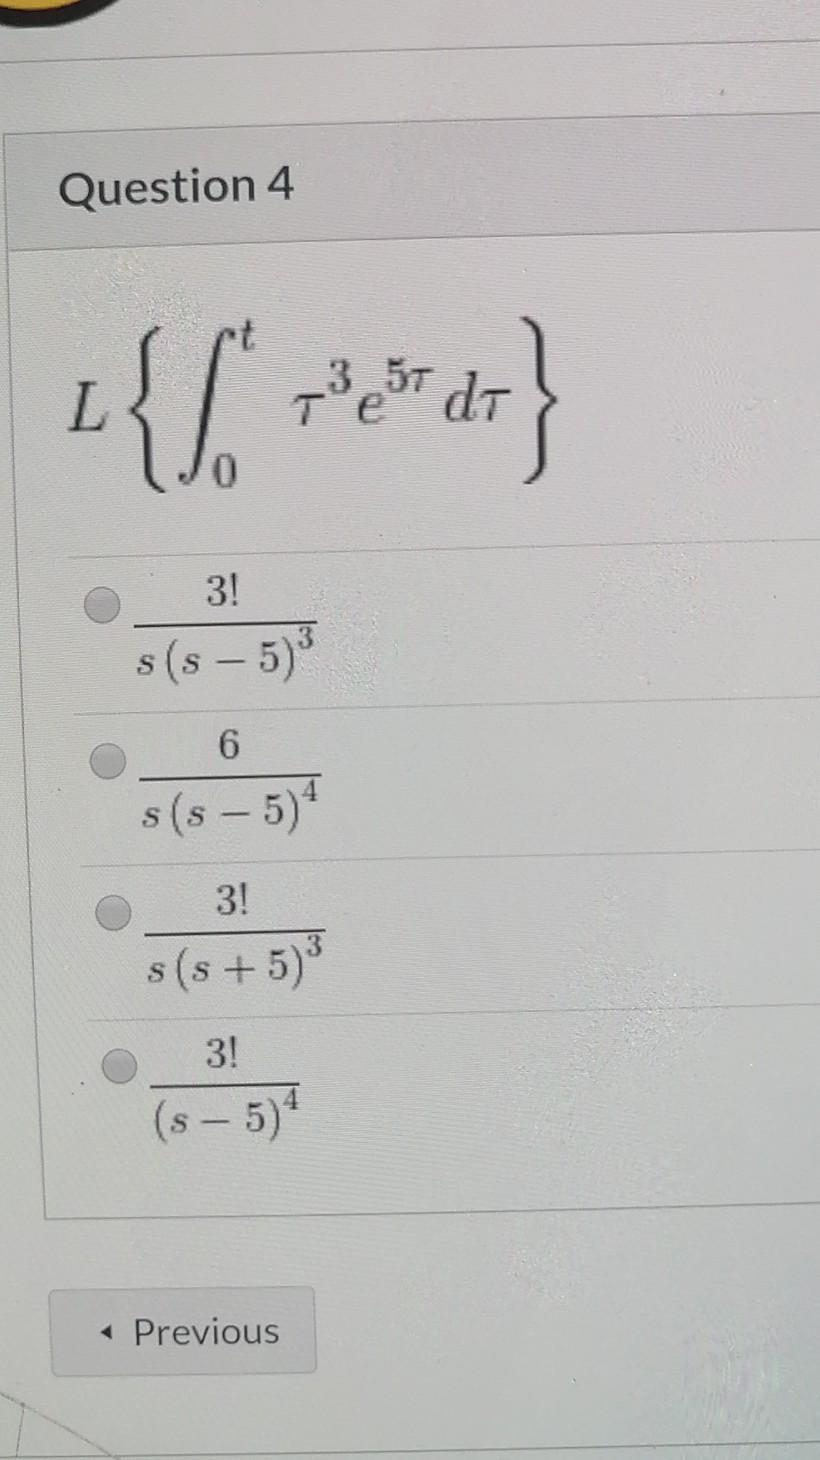 Question 4
L{∫₀ᵗ τ³e⁵ᵀ dτ}
3!
s(s − 5)³
6
s(s − 5)⁴
3!
s(s + 5)³
3!
(s − 5)⁴
◂ Previous